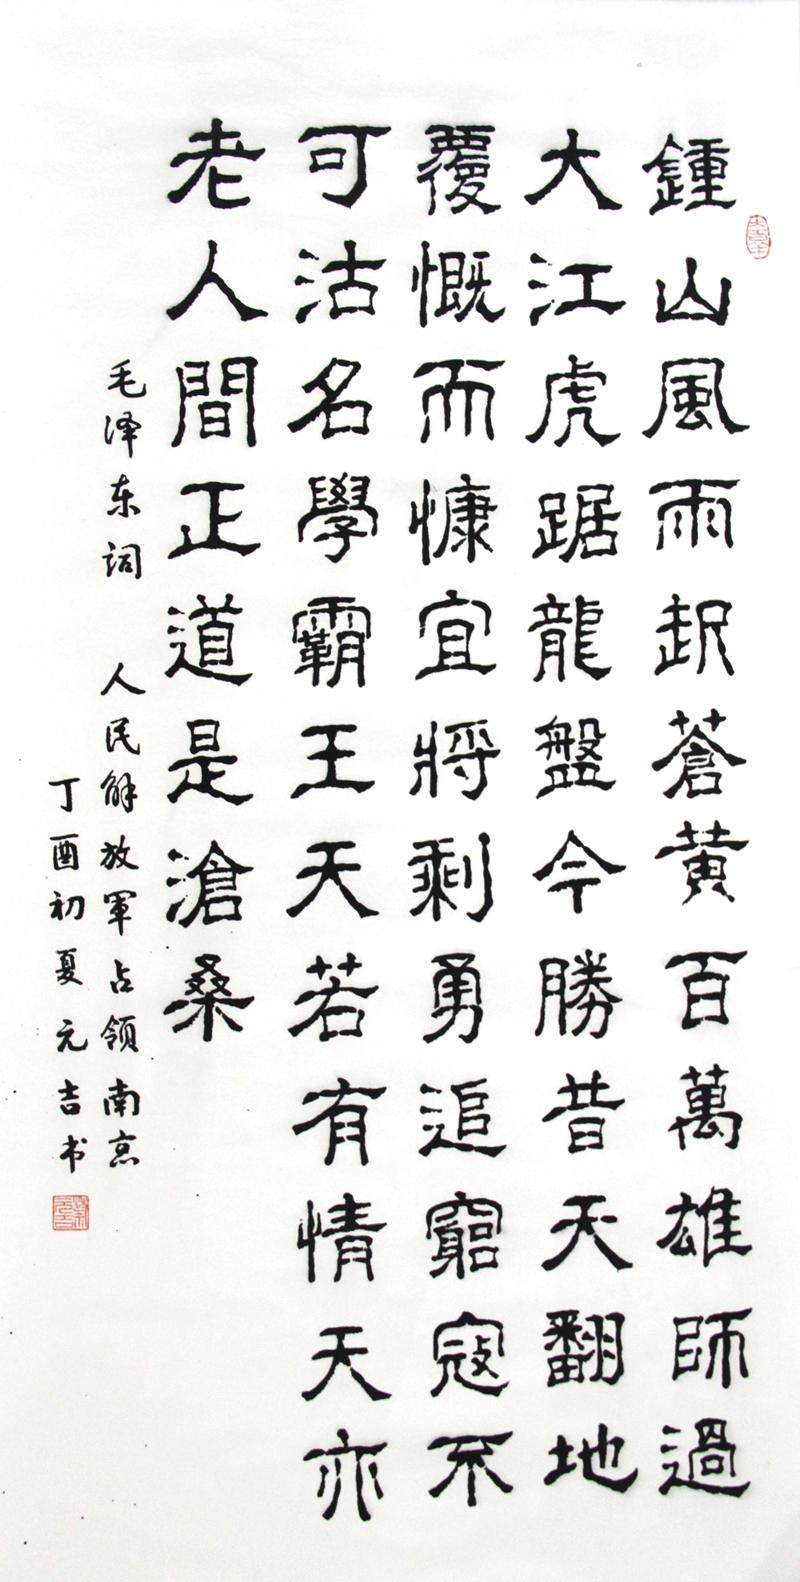 鍾山風雨起蒼黃百萬雄師過
大江虎踞龍盤今勝昔天翻地
覆慨而慷宜將剩勇追窮寇不
可沽名學霸王天若有情天亦
老人間正道是滄桑
毛泽东词 人民解放軍占领南京
丁酉初夏元吉书